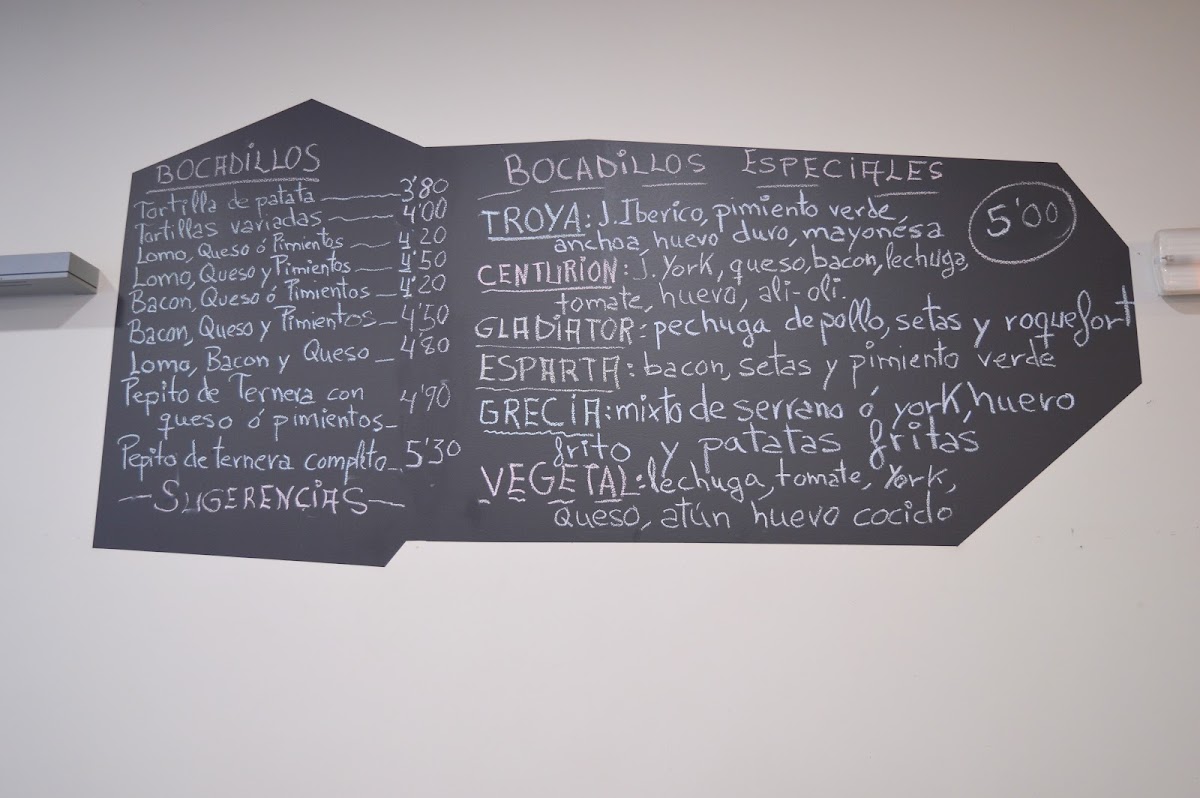 BOCADILLOS
Tortilla de patata 3'80
Tortillas variadas 4'00
Lomo, Queso ó Pimientos 4'20
Lomo, Queso y Pimientos 4'50
Bacon, Queso ó Pimientos 4'20
Bacon, Queso y Pimientos 4'50
Lomo, Bacon y Queso 4'80
Pepito de Ternera con
queso ó pimientos 4'90
Pepito de ternera completo 5'30
SUGERENCIAS
BOCADILLOS ESPECIALES
5'00
TROYA: J. Iberico, pimiento verde,
anchoa, huevo duro, mayonesa
CENTURION: J. York, queso, bacon, lechuga,
tomate, huevo, ali-oli.
GLADIATOR: pechuga de pollo, setas y roquefort
ESPARTA: bacon, setas y pimiento verde
GRECIA: mixto de serrano ó york, huevo
frito y patatas fritas
VEGETAL: lechuga, tomate, York,
Queso, atún huevo cocido